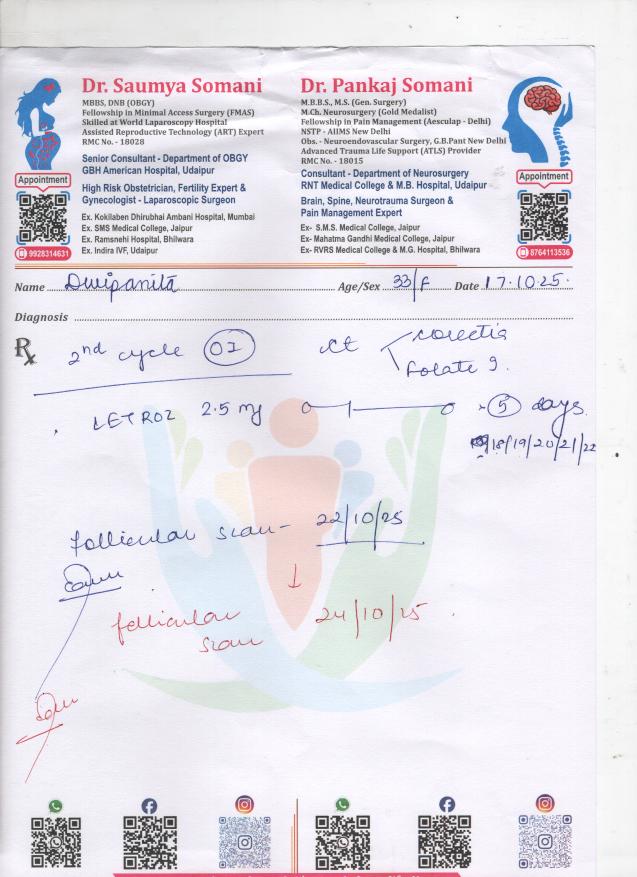 Dr. Saumya Somani
MBBS, DNB (OBGY)
Fellowship in Minimal Access Surgery (FMAS)
Skilled at World Laparoscopy Hospital
Assisted Reproductive Technology (ART) Expert
RMC No. - 18028
Senior Consultant - Department of OBGY
GBH American Hospital, Udaipur
High Risk Obstetrician, Fertility Expert &
Gynecologist - Laparoscopic Surgeon
Ex. Kokilaben Dhirubhai Ambani Hospital, Mumbai
Ex. SMS Medical College, Jaipur
Ex. Ramsnehi Hospital, Bhilwara
Ex. Indira IVF, Udaipur
Appointment
9928314631
Dr. Pankaj Somani
M.B.B.S., M.S. (Gen. Surgery)
M.Ch. Neurosurgery (Gold Medalist)
Fellowship in Pain Management (Aesculap - Delhi)
NSTP - AIIMS New Delhi
Obs. - Neuroendovascular Surgery, G.B.Pant New Delhi
Advanced Trauma Life Support (ATLS) Provider
RMC No. - 18015
Consultant - Department of Neurosurgery
RNT Medical College & M.B. Hospital, Udaipur
Brain, Spine, Neurotrauma Surgeon &
Pain Management Expert
Ex- S.M.S. Medical College, Jaipur
Ex- Mahatma Gandhi Medical College, Jaipur
Ex- RVRS Medical College & M.G. Hospital, Bhilwara
Appointment
8764113536
Name Dwipanita Age/Sex 33/F Date 17.10.25.
Diagnosis
Rx 2nd cycle OI ct
Folate
LETROZ 2.5 mg 5 days
18/19/20/21/22
follicular scan - 22/10/25
follicular 24/10/25
scan